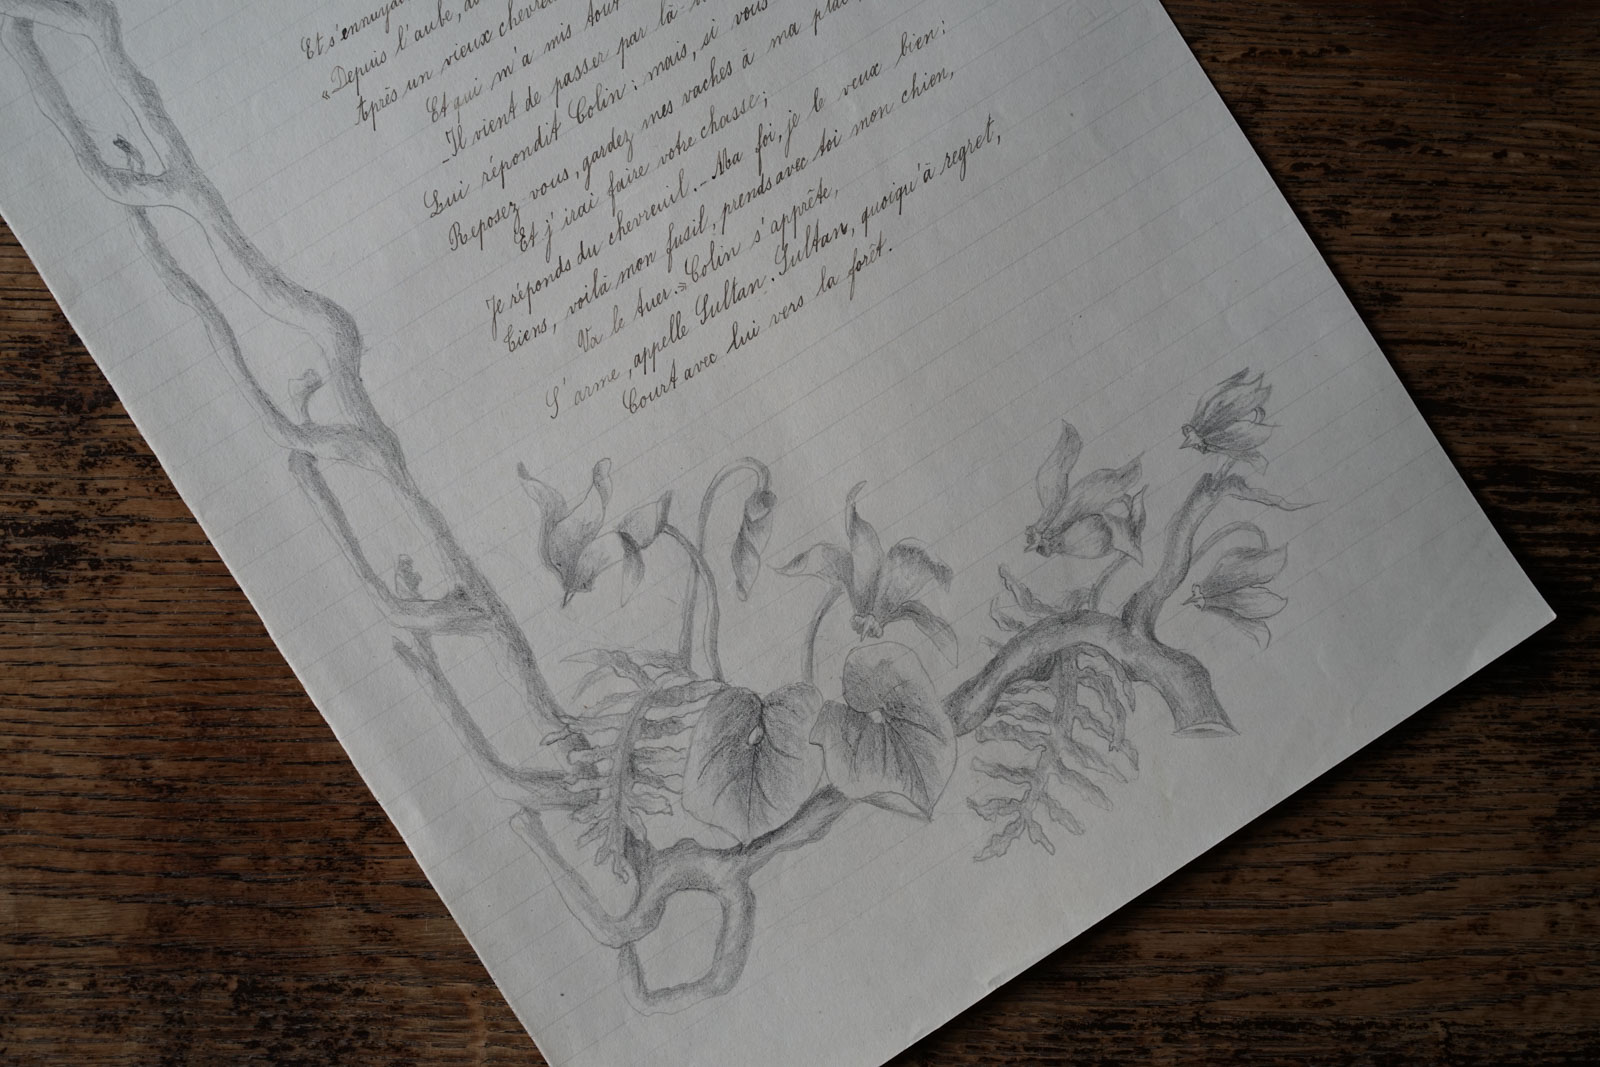 Et s'ennuyai
«Depuis l'aube,
Après un vieux chevreu
Et qui m'a mis tout
_Il vient de passer par là-
Lui répondit Colin: mais, si vous
Reposez vous, gardez mes vaches à ma plac
Et j'irai faire votre chasse;
Je réponds du chevreuil._ Ma foi, je le veux bien:
Tiens, voilà mon fusil, prends avec toi mon chien,
Va le tuer.» Colin s'apprête,
S'arme, appelle Sultan. Sultan, quoiqu'à regret,
Court avec lui vers la forêt.